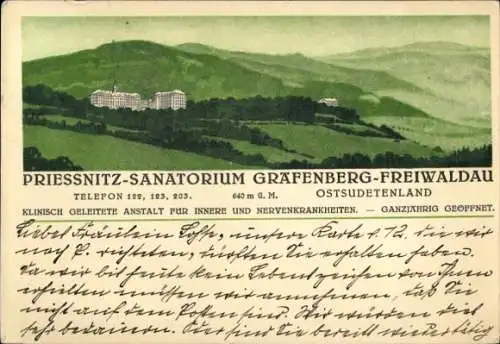 PRIESSNITZ-SANATORIUM GRÄFENBERG-FREIWALDAU
TELEFON 122, 123, 203. 640 m Ü. M. OSTSUDETENLAND
KLINISCH GELEITETE ANSTALT FÜR INNERE UND NERVENKRANKHEITEN. — GANZJÄHRIG GEÖFFNET.
Liebes Fräulein unsere Karte v. 12. die wir
nach P. richteten, dürften Sie erhalten haben.
Da wir bis heute kein Lebenszeichen von Ihnen
erhielten müssen wir annehmen, daß Sie
nicht auf dem Posten sind. Wir würden dies
sehr bedauern. Oder sind Sie bereits